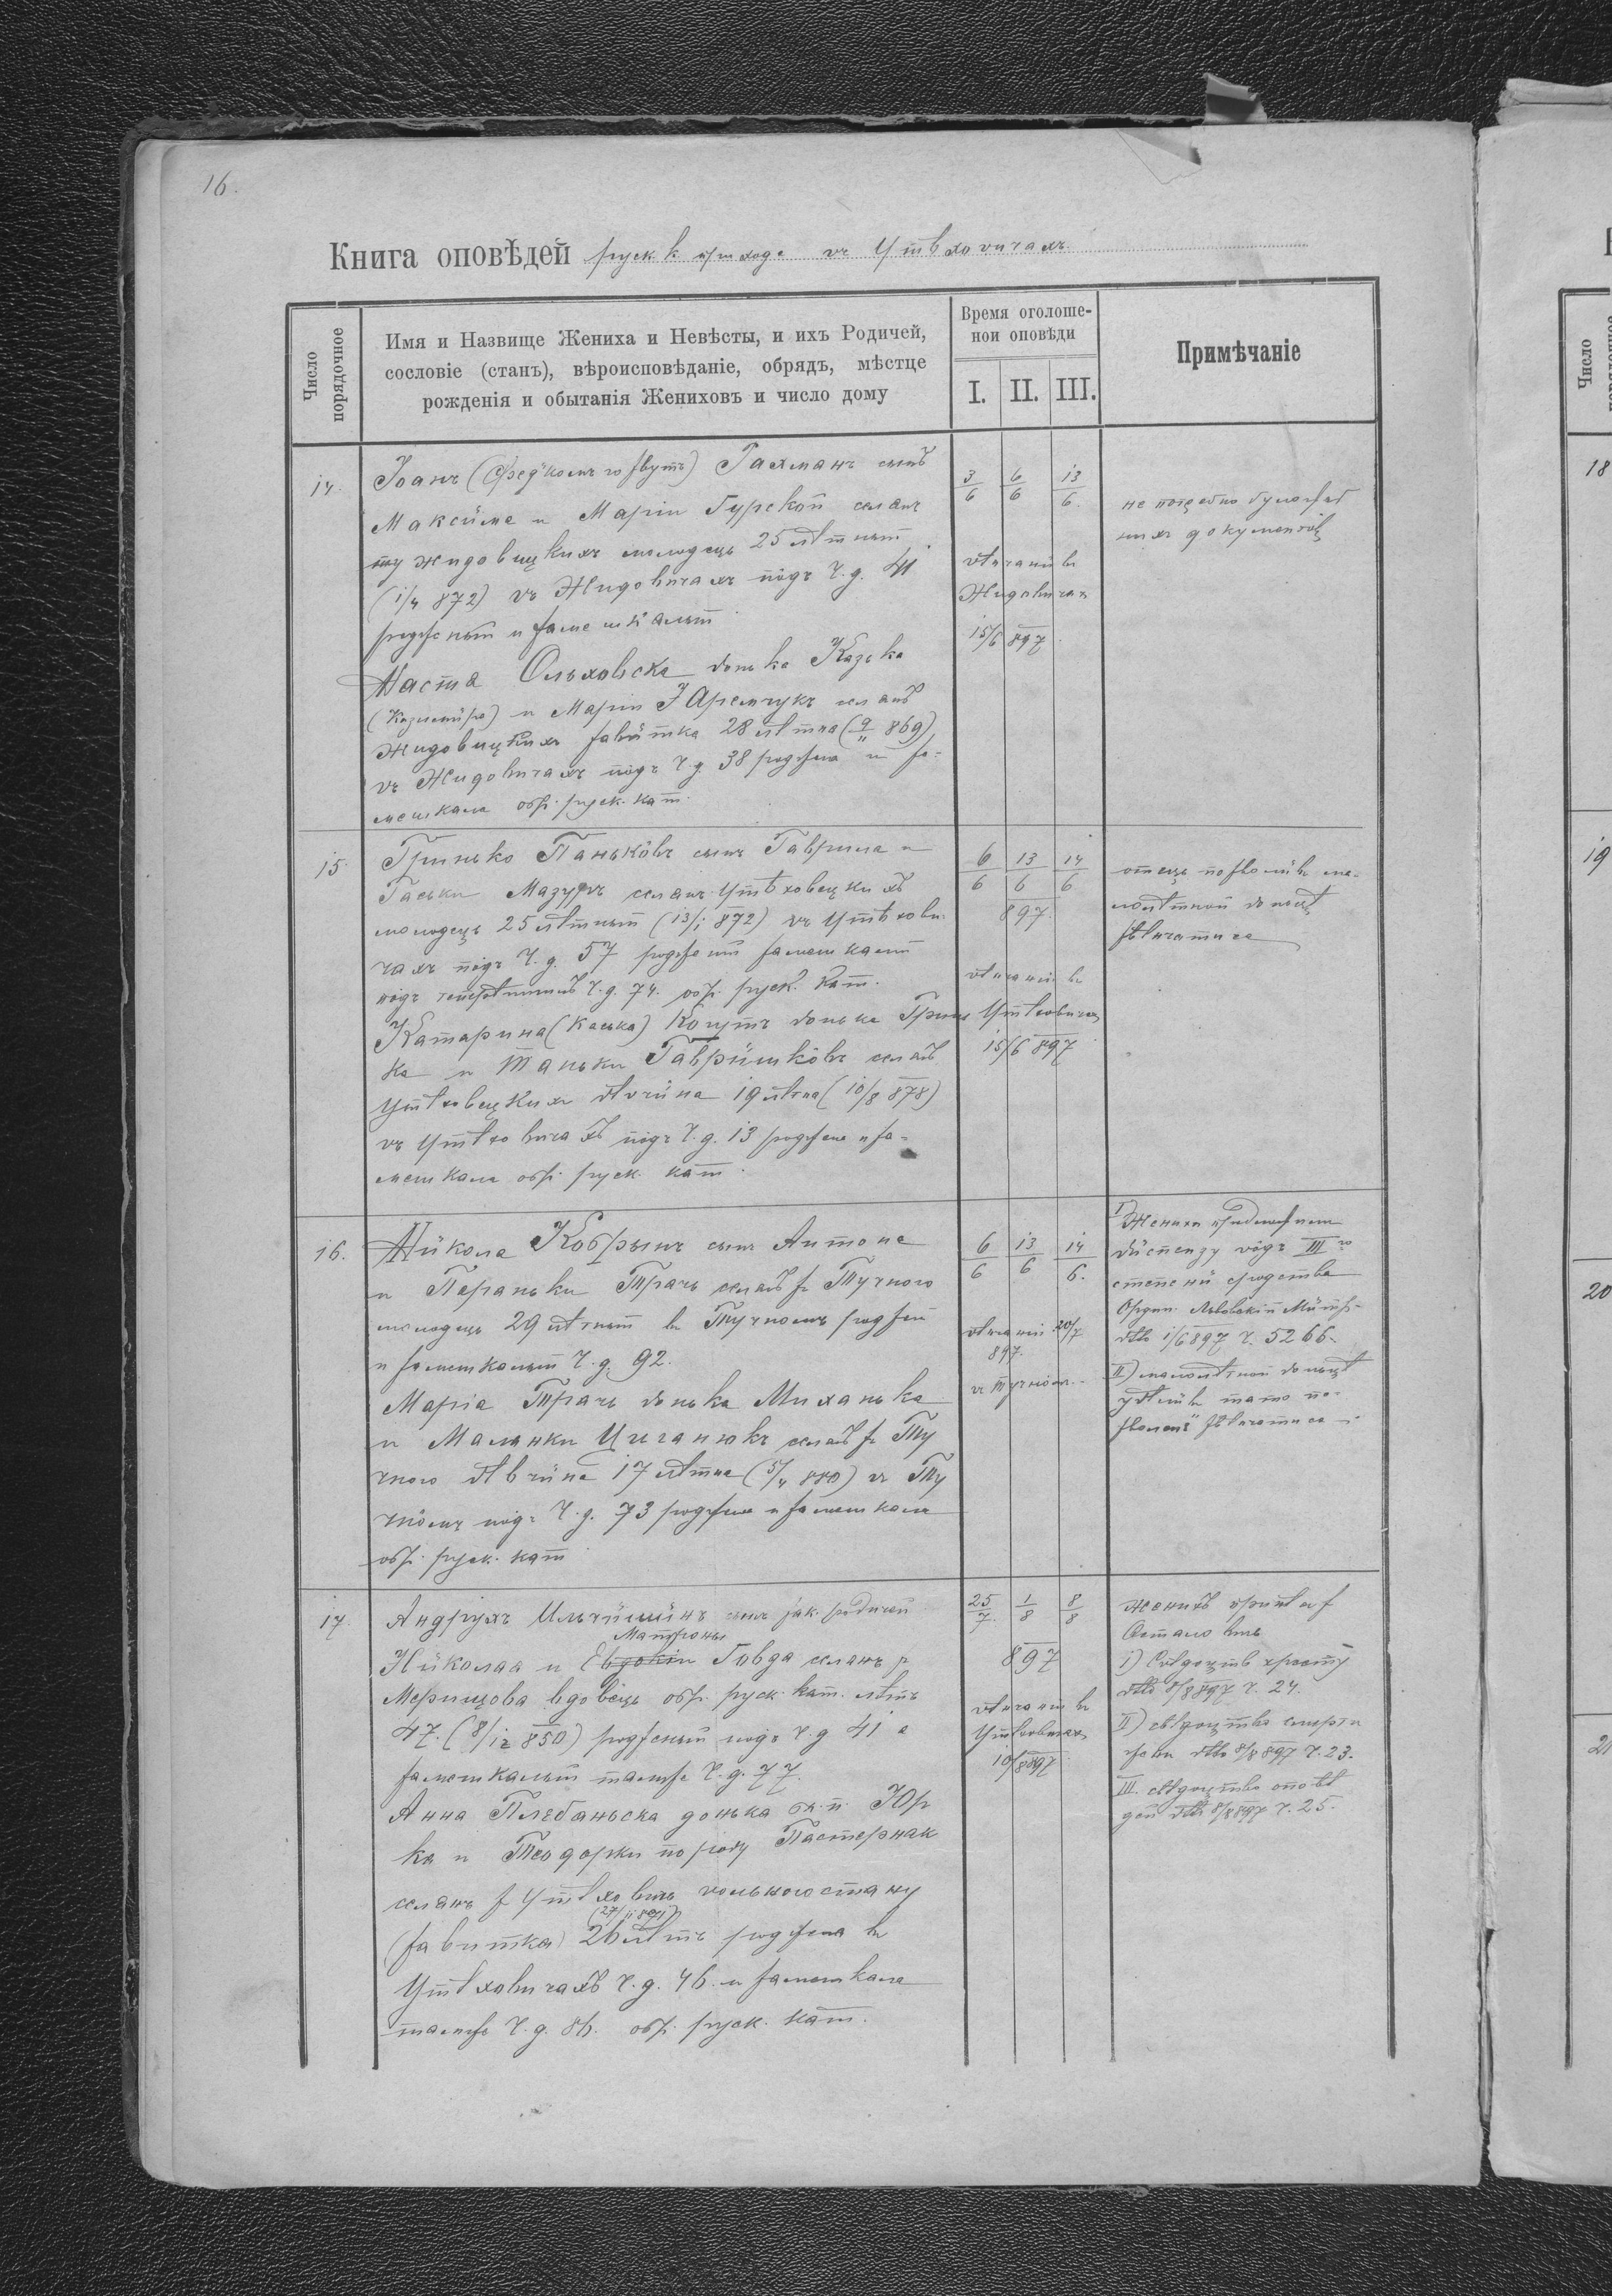 16.
Книга оповѣдей руск к приходѣ въ Утѣховичахъ
Число порядочное
Имя и Назвище Жениха и Невѣсты, и ихъ Родичей,
сословіе (станъ), вѣроисповѣданіе, обрядъ, мѣстце
рожденія и обытанія Жениховъ и число дому
Время оголоше-
нои оповѣди
I. II. III.
Примѣчаніе
14.
Іоанъ Гахманъ сынъ
Максима и Маріи Гурской селянъ
жидовицкихъ молодець 25 лѣтный
(1/4 872) въ Жидовичахъ пôдъ Ч. д. 41
родженый и замешкалый
Наста Ольховска донька Казька
(Казимира) и Маріи Яремчукъ селянъ
жидовицкихъ завитка 28 лѣтна (9/11 869)
въ Жидовичахъ пôдъ Ч. д. 38 роджена и за-
мешкала обр. руск. кат.
3/6 6/6 13/6.
вѣнчаний въ
Жидовичах
15/6 897
не потребно
них документôв
15.
Гринько Паньковъ сынъ Гаврила и
Гаськи Мазуръ селянъ Утѣховецкихъ
молодець 25 лѣтный (13/1 872) въ Утѣхови-
чахъ пôдъ Ч. д. 57 родженый замешкалый
пôдъ теперѣшнимъ Ч. д. 74. обр. руск. кат.
Катарина (Каська) Когутъ донька Гринь
ка и Таньки Гавришкôвъ селянъ
Утѣховецких дѣвчина 19 лѣтна (10/8 878)
въ Утѣховичахъ пôдъ Ч. д. 13 роджена и за-
мешкала обр. руск. кат.
6/6 13/6 14/6
897.
вѣнчаний въ
Утѣховичах
15/6 897
отець позволивъ ма-
лолѣтной доньцѣ
вѣнчатися
16.
Никола Кобрынъ сынъ Антона
и Параньки Трачъ селянъ з Тучного
молодець 29 лѣтный въ Тучномъ родженый
и замешкалый Ч. д. 92.
Марія Трачъ донька Миханька
и Маланки Циганюкъ селянъ з Ту
чного дѣвчина 17 лѣтна (5/4 880) въ Ту
чнôмъ пôдъ Ч. д. 73 роджена и замешкала
обр. руск. кат
6/6 13/6 14/6.
вѣнчаний 20/7
897.
въ Тучнôм
I Женихи предложили
диспензу вôдъ III го
степени сродства
Ордин. Львовскій Митр.
дто 1/6 897 Ч. 5266.
II) малолѣтной доньцѣ
удѣливъ тато по-
зволенѣ вѣнчатися
17.
Андрухъ Ильчишинъ сынъ родичей
Матроны
Николая и Евдокіи Говда селянъ з
Мерищова вдовець обр. руск. кат. лѣтъ
47. (8/12 850) родженый пôдъ Ч. д 41 а
замешкалый тамже Ч. д. 77.
Анна Плебаньска донька Юр
ка и Теодорки по роду Пастернак
селянъ з Утѣховичь вольного стану
(27/11 871)
(завитка) 26 лѣтъ роджена въ
Утѣховичахъ Ч. д. 46. и замешкала
тамже Ч. д. 86. обр. руск. кат.
25/7. 1/8 8/8
897
вѣнчаний въ
Утѣховичах
10/8 897
женихъ
1) Свѣдоцтво хресту
дто 8/8 897 Ч. 24.
II) свѣдоцтво смерти
жени дто 8/8 897 Ч. 23.
III. свѣдоцтво оповѣ
дей дто 8/8 897 Ч. 25.
Число
18
19
20
21